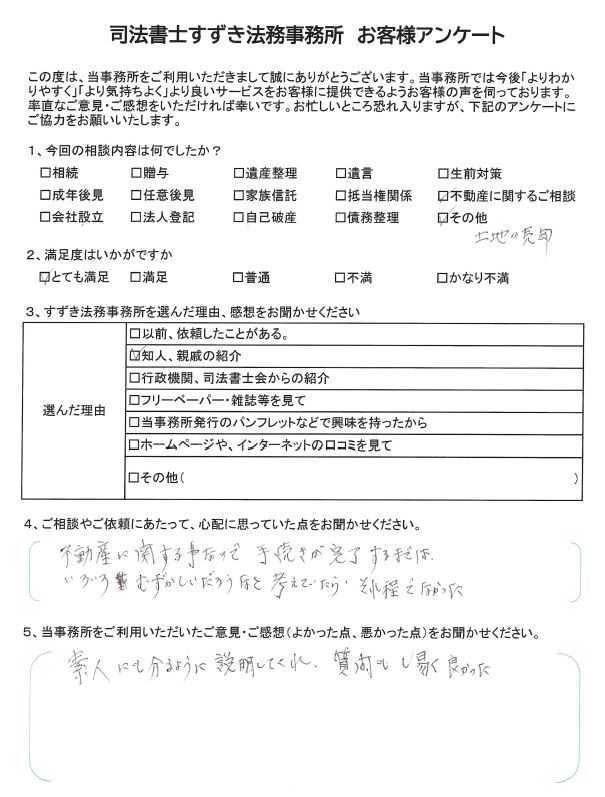 司法書士すずき法務事務所 お客様アンケート
この度は、当事務所をご利用いただきまして誠にありがとうございます。当事務所では今後「よりわか
りやすく」「より気持ちよく」より良いサービスをお客様に提供できるようお客様の声を伺っております。
率直なご意見・ご感想をいただければ幸いです。お忙しいところ恐れ入りますが、下記のアンケートに
ご協力をお願いいたします。
1、今回の相談内容は何でしたか?
□相続 □贈与 □遺産整理 □遺言 □生前対策
□成年後見 □任意後見 □家族信託 □抵当権関係 ☑不動産に関するご相談
□会社設立 □法人登記 □自己破産 □債務整理 ☑その他
土地の売却
2、満足度はいかがですか
☑とても満足 □満足 □普通 □不満 □かなり不満
3、すずき法務事務所を選んだ理由、感想をお聞かせください
選んだ理由
□以前、依頼したことがある。
☑知人、親戚の紹介
□行政機関、司法書士会からの紹介
□フリーペーパー・雑誌等を見て
□当事務所発行のパンフレットなどで興味を持ったから
□ホームページや、インターネットの口コミを見て
□その他( )
4、ご相談やご依頼にあたって、心配に思っていた点をお聞かせください。
不動産に関する事なので 手続きが完了するまでは、
いろいろ むずかしいだろうなと 考えていたら、それ程でなかった
5、当事務所をご利用いただいたご意見・ご感想(よかった点、悪かった点)をお聞かせください。
素人にも分るように説明してくれ、質問もし易く良かった